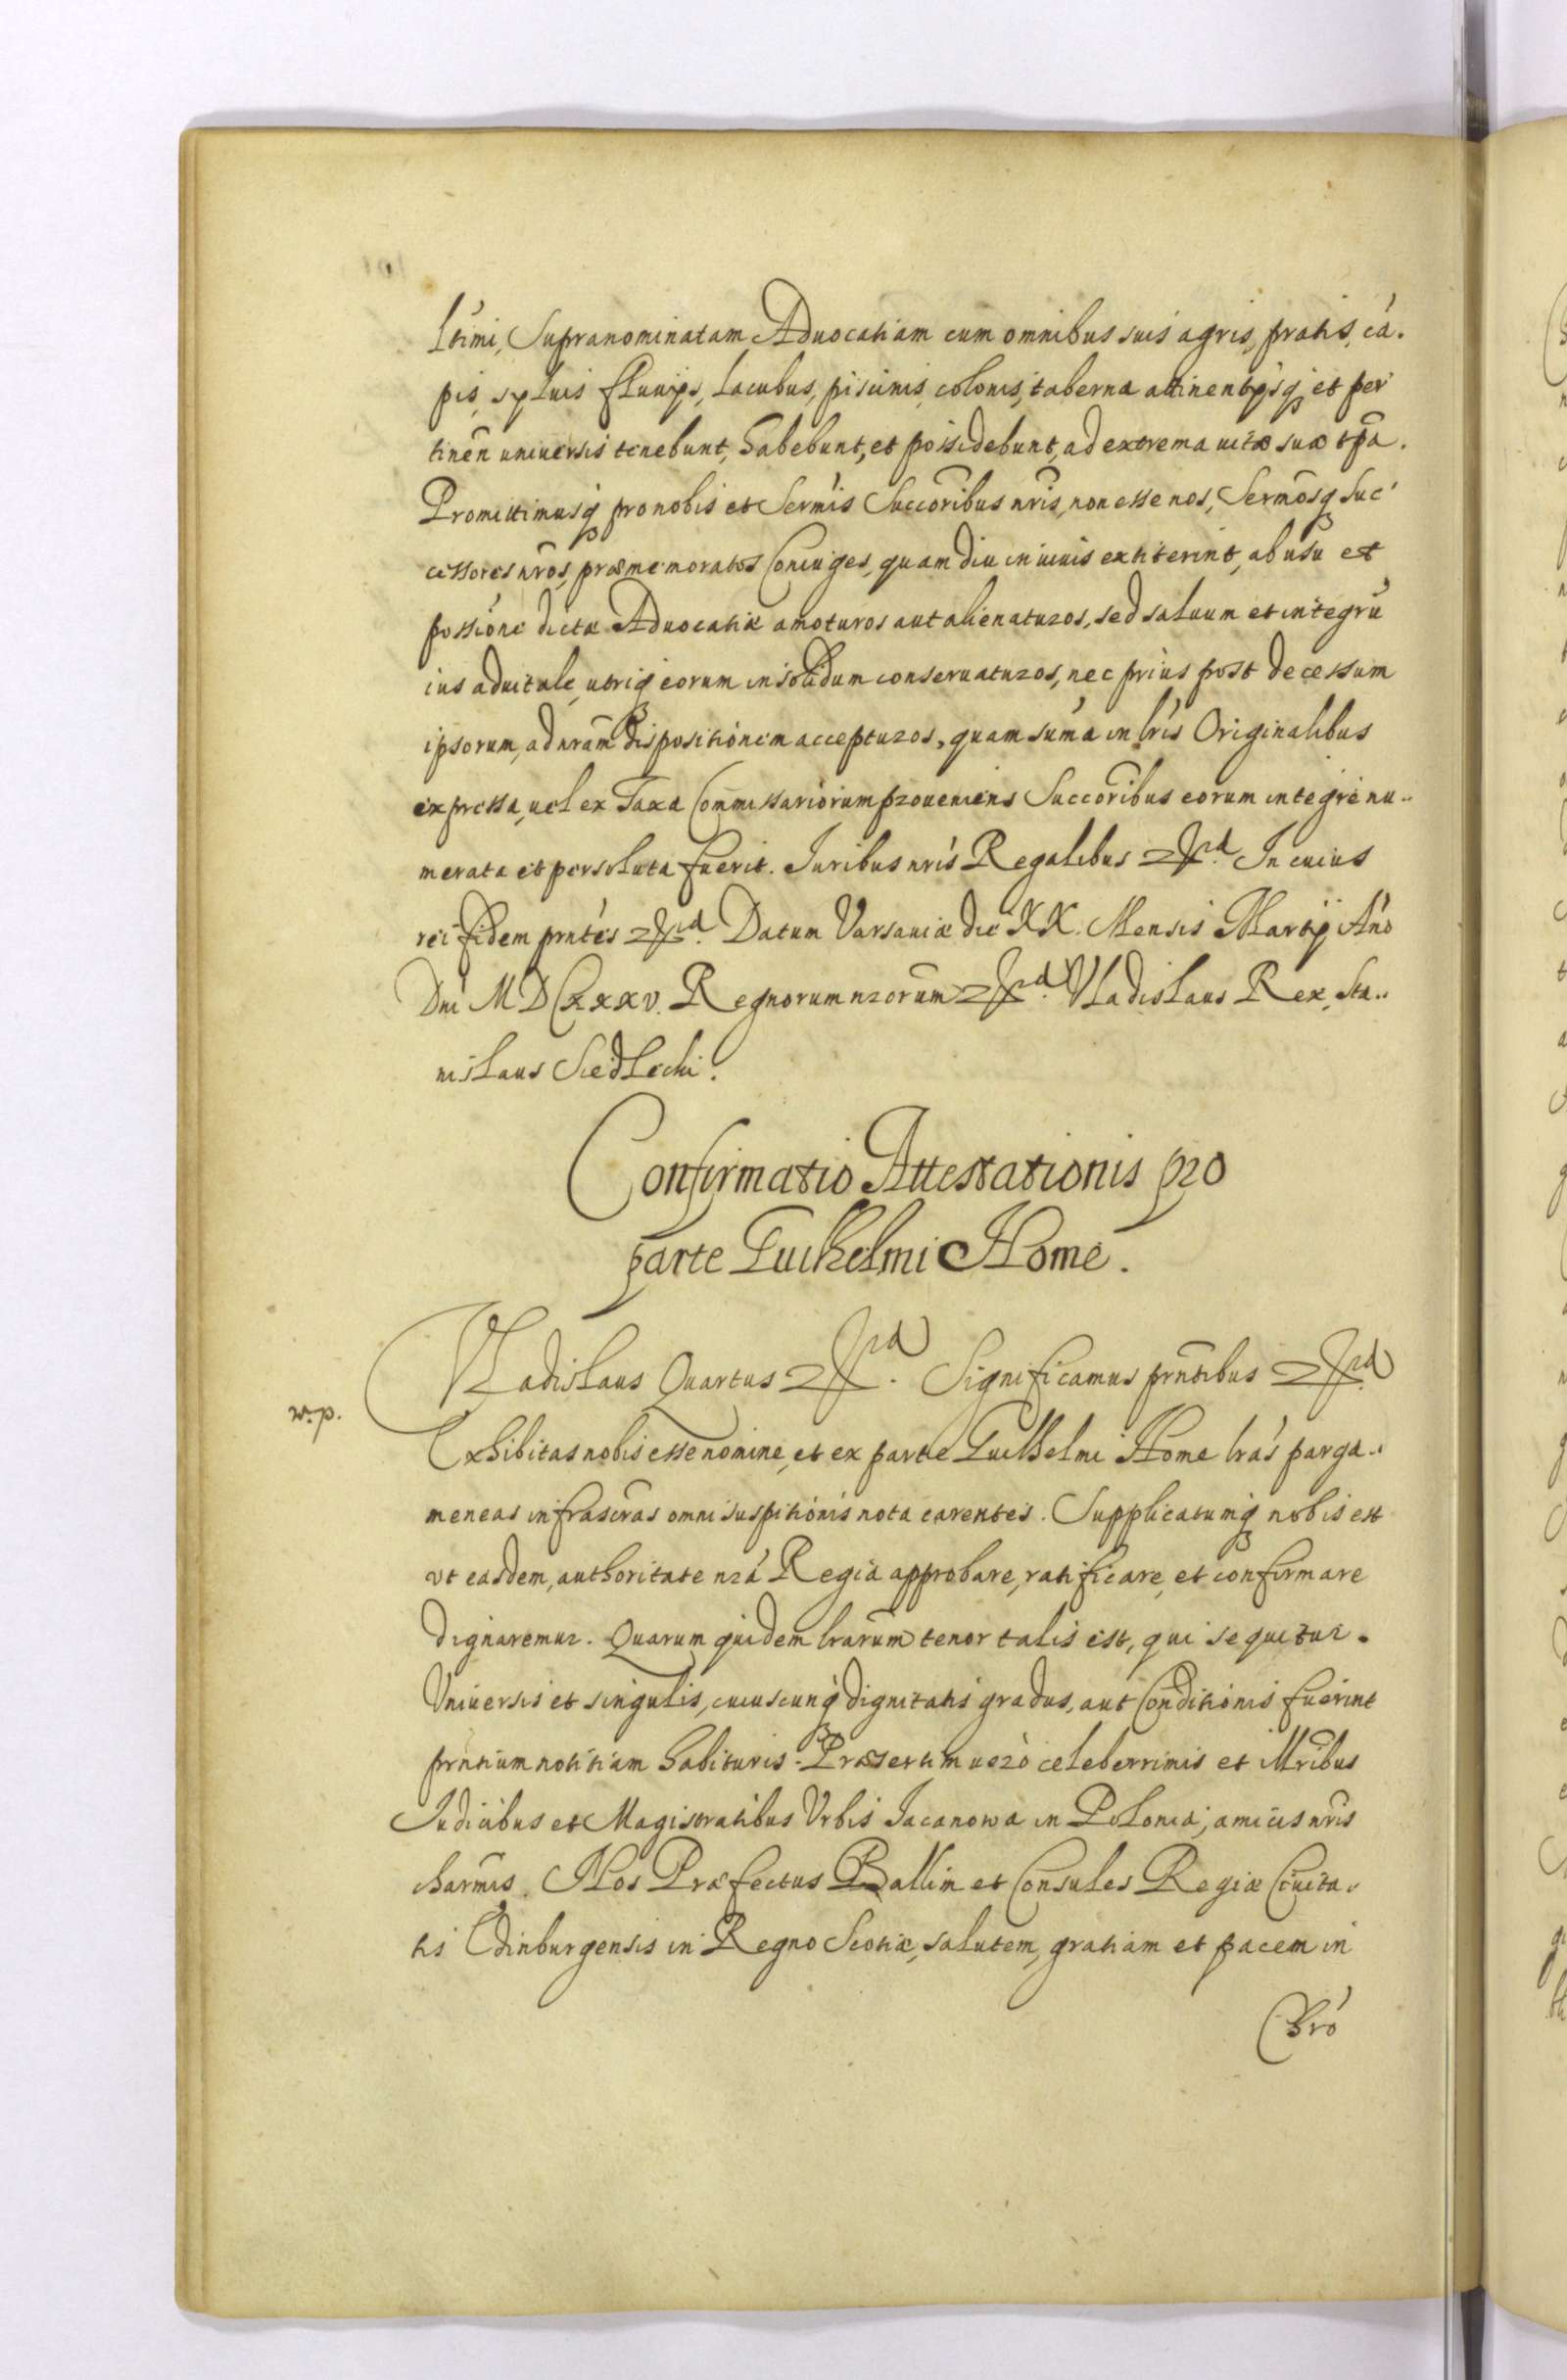 ltimi, Supranominatam Aduocatiam cum omnibus suis agris, pratis, cã.
pis, syluis fluuijs, lacubus, piscinis, colonis, taberna attinentijsq₃ et per
tineñ uniuersis tenebunt, habebunt, et possidebunt, ad extrema uitæ suæ tp̃a.
Promittimusq₃ pro nobis et Serm̃is Succorĩbus nr̃is, non esse nos, Sermõsq₃ Suc
cessores nr̃os, præmemoratos Coniuges, quam diu in uiuis extiterint, ab usu et
possionẽ dictæ Aduocatiæ amoturos aut alienaturos, sed saluum et integrũ
ius aduitale, utriq₃ eorum in solidum conseruaturos, nec prius post decessum
ipsorum, ad nrãm dispositionem accepturos, quam sum̃a in lr̃is Originalibus
expressa, uel ex Taxa Commissariorum proueniens Succorĩbus eorum integrè nu..
merata et persoluta fuerit. Juribus nr̃is Regalibus In cuius
rei fidem prñtes Datum Varsauiæ die XX. Mensis Martij Año
Dñi MDCXXXV. Regnorum nrorũm Vladislaus Rex, Sta..
nislaus Siedlecki.
Confirmatio Attestationis pro
parte Guilhelmi Home.
Vladislaus Quartus Significamus prñtibus
Exhibitas nobis esse nomine, et ex parte Guilhelmi Home lrãs parga..
meneas infrascrãs omni suspitionis nota carentes. Supplicatumq₃ nobis est
vt easdem, authoritate nrã Regia approbare, ratificare, et confirmare
dignaremur. Quarum quidem lrarũm tenor talis est, qui sequitur.
Vniuersis et singulis, cuiuscunq₃ dignitatis gradus, aut Conditionis fuerint
prñtium notitiam habituris. Præsertim uerò celeberrimis et Illrĩbus
Judicibus et Magistratibus Vrbis Jacanowa in Polonia, amicis nr̃is
charm̃is. Nos Præfectus Balliui et Consules Regiæ Ciuita.
tis Edinburgensis in Regno Scotiæ, salutem, gratiam et pacem in
Chrõ